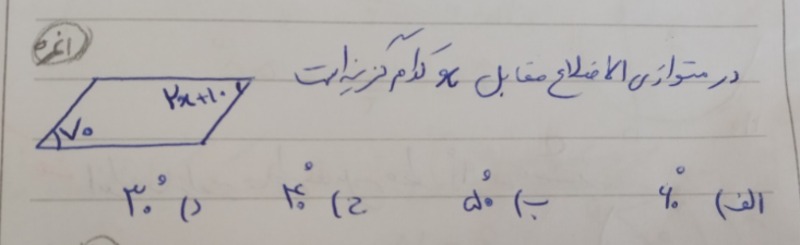 ۱نمره
در متوازی الاضلاع مقابل x کدام گزینه است
۲x+۱۰
۷۰
الف) ۶۰° ب) ۵۰° ج) ۴۰° د) ۳۰°